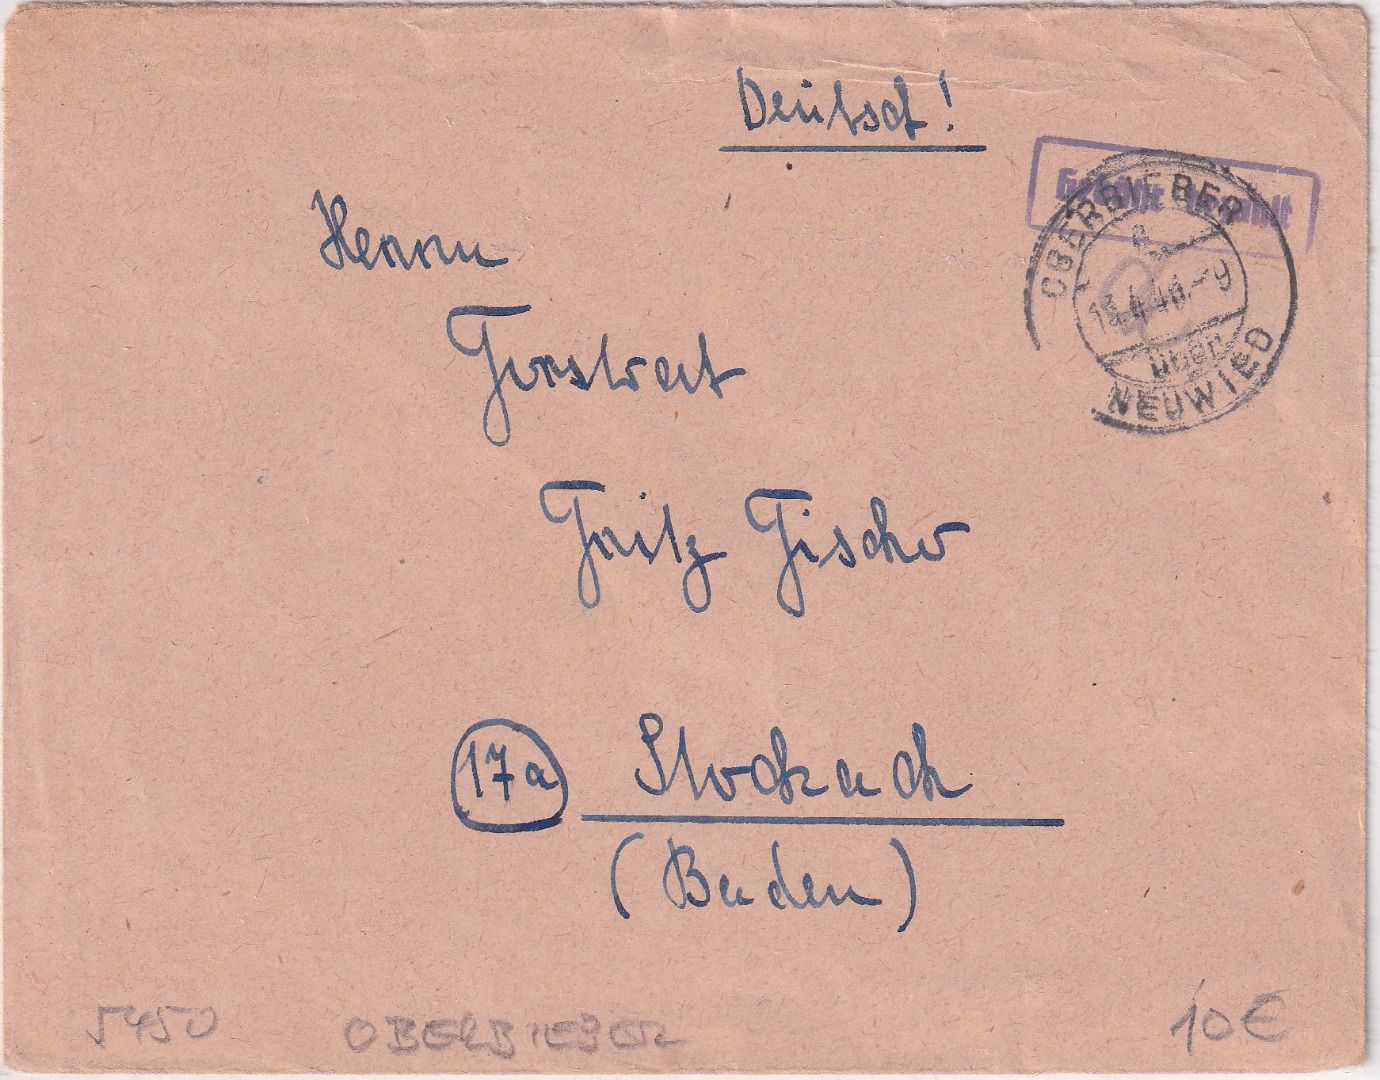 Deutsch!
Gebühr bezahlt
OBERBIEBER
a
über
NEUWIED
Herrn
Forstrat
Fritz Fischer
17a Stockach
(Baden)
5450 OBERBIEBER 10€